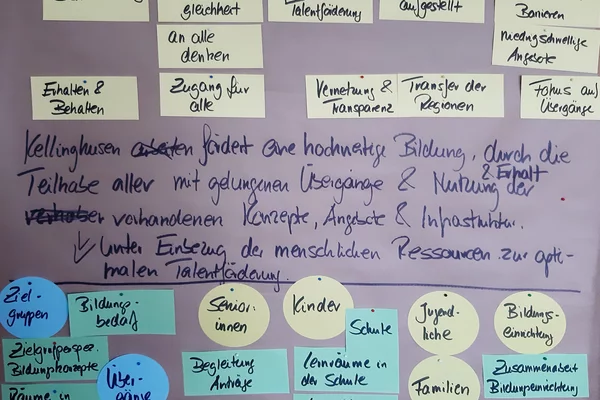 gleichheit
Talentförderung
aufgestellt
Barrieren
an alle
denken
niedrigschwellige
Angebote
Erhalten &
Behalten
Zugang für
alle
Vernetzung &
Transparenz
Transfer der
Regionen
Fokus auf
Übergänge
Kellinghusen fördert eine hochwertige Bildung, durch die
Teilhabe aller mit gelungenen Übergänge & Nutzung & Erhalt der
vorhandenen Konzepte, Angebote & Infrastruktur.
Unter Einbezug der menschlichen Ressourcen zur opti-
malen Talentförderung.
Ziel-
gruppen
Bildungs-
bedarf
Senior
innen
Kinder
Schule
Jugend-
liche
Bildungs-
einrichtung
Bildungskonzepte
Über-
gänge
Begleitung
Anträge
Lernräume in
der Schule
Familien
Zusammenarbeit
Bildungseinrichtung
Räume in